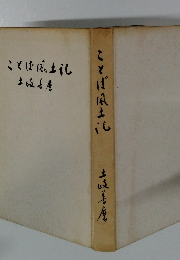 ことば風土記
土岐善麿
ことば風土記
土岐善麿